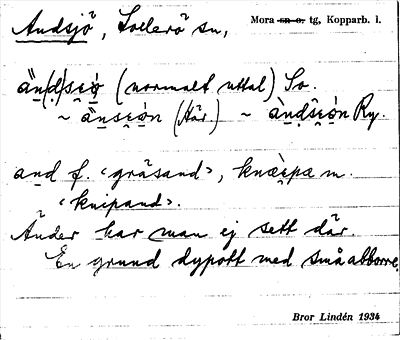 Andsjö, Sollerö sn,
Mora sn o. tg, Kopparb. l.
(normalt uttal) So.
~ (Här.) ~ Ry.
and f. ‹gräsand›, m.
‹knipand›.
Änder har man ej sett där.
En grund dypott med små abborre.
Bror Lindén 1934